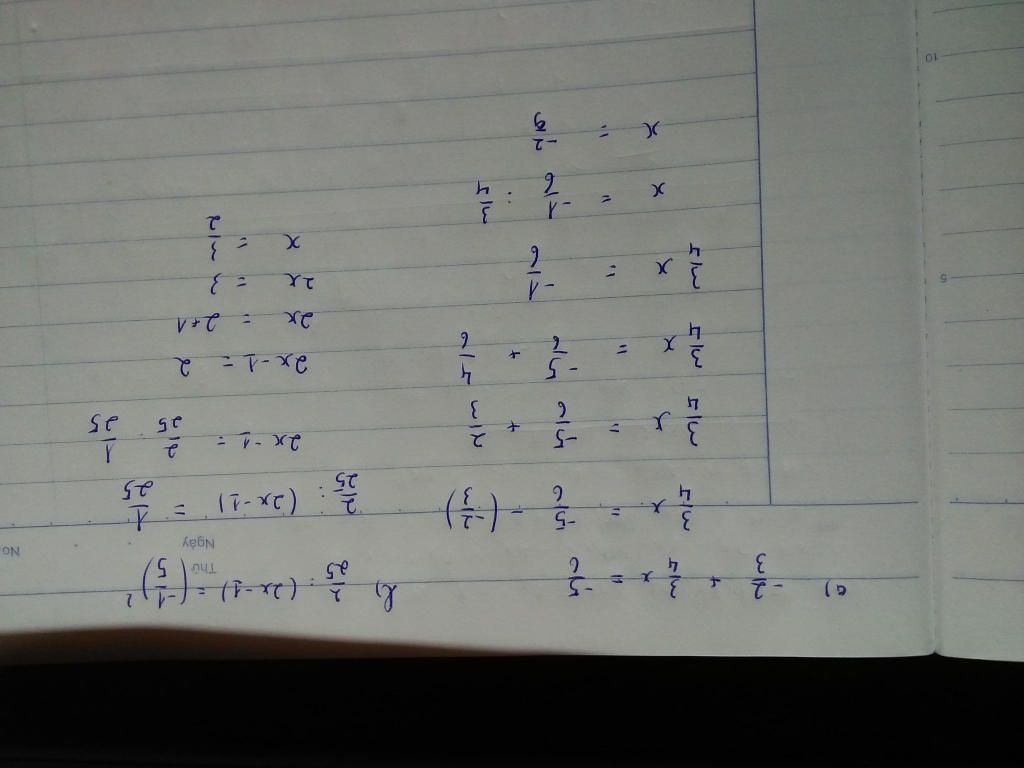 a) -2/3 + 3/4 x = -5/6
3/4 x = -5/6 - (-2/3)
3/4 x = -5/6 + 2/3
3/4 x = -5/6 + 4/6
3/4 x = -1/6
x = -1/6 : 3/4
x = -2/9
b) 2/25 : (2x-1) = (-1/5)²
2/25 : (2x-1) = 1/25
2x-1 = 2/25 : 1/25
2x-1 = 2
2x = 2+1
2x = 3
x = 3/2
Thứ
Ngày
No.
5
10